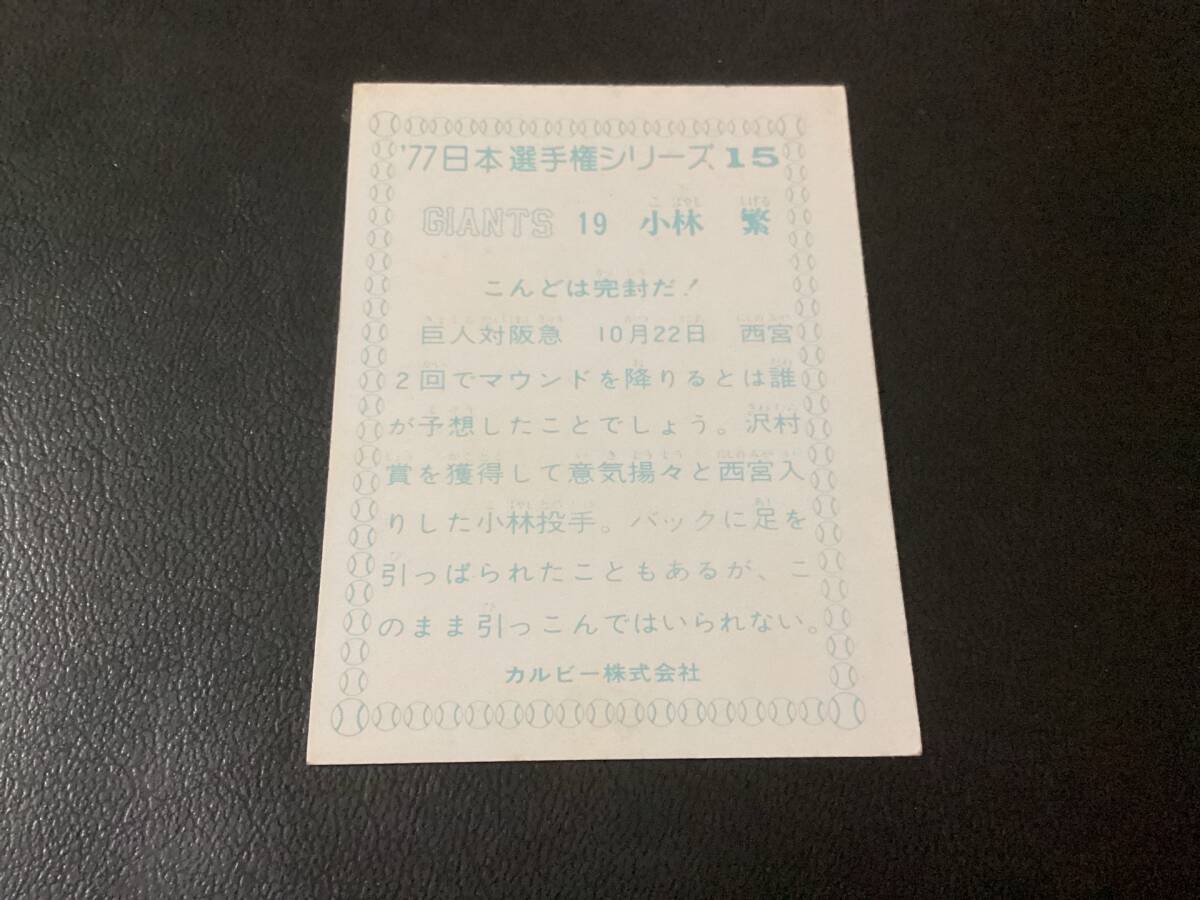 '77日本選手権シリーズ 15
GIANTS 19 小林 繁
こんどは完封だ!
巨人対阪急 10月22日 西宮
2回でマウンドを降りるとは誰
が予想したことでしょう。沢村
賞を獲得して意気揚々と西宮入
りした小林投手。バックに足を
引っぱられたこともあるが、こ
のまま引っこんではいられない。
カルビー株式会社